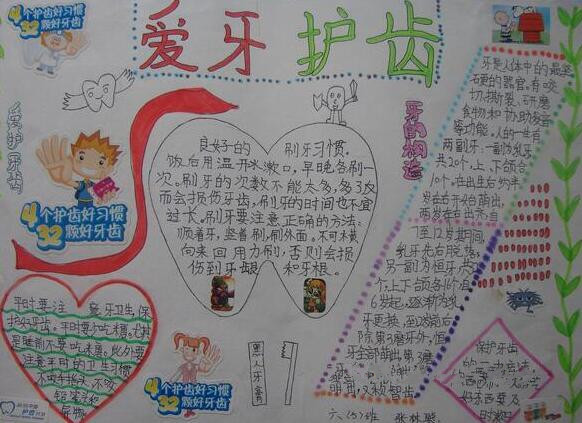 爱牙护齿
4个护齿好习惯
32颗好牙齿
爱护牙齿
4个护齿好习惯
32颗好牙齿
良好的刷牙习惯,
饭后用温开水漱口,早晚各刷一
次。刷牙的次数不能太多,多了反
而会损伤牙齿,刷牙的时间也不宜
过长。刷牙要注意正确的方法:
顺着牙,竖着刷,刷外面。不可横
向来回用力刷,否则会损
伤到牙龈和牙根。
牙的构造
牙是人体中的最坚
硬的器官。有咬
切、撕裂、研磨
食物和协助发音
等功能。人的一生有
两副牙,一副为乳牙
共20个,上、下颌各
10个。在出生后约半
岁左右开始萌出,
两岁左右出齐,自
7至12岁期间,
乳牙先右脱落,
另一副为恒牙
个上下颌各
6岁起,逐渐为
牙更换,至12岁前后
除第3磨牙外,恒
牙全部萌出。第3磨
又叔智齿
平时要注意牙卫生,保
护好牙齿。平时要少吃糖,尤其
是睡前不要吃糖。此外要
注意平时的卫生习惯
不咬手指头,不咬
铅笔
4个护齿好习惯
32颗好牙齿
黑人牙膏
保护牙齿
好东西要及
时
六、(5)班